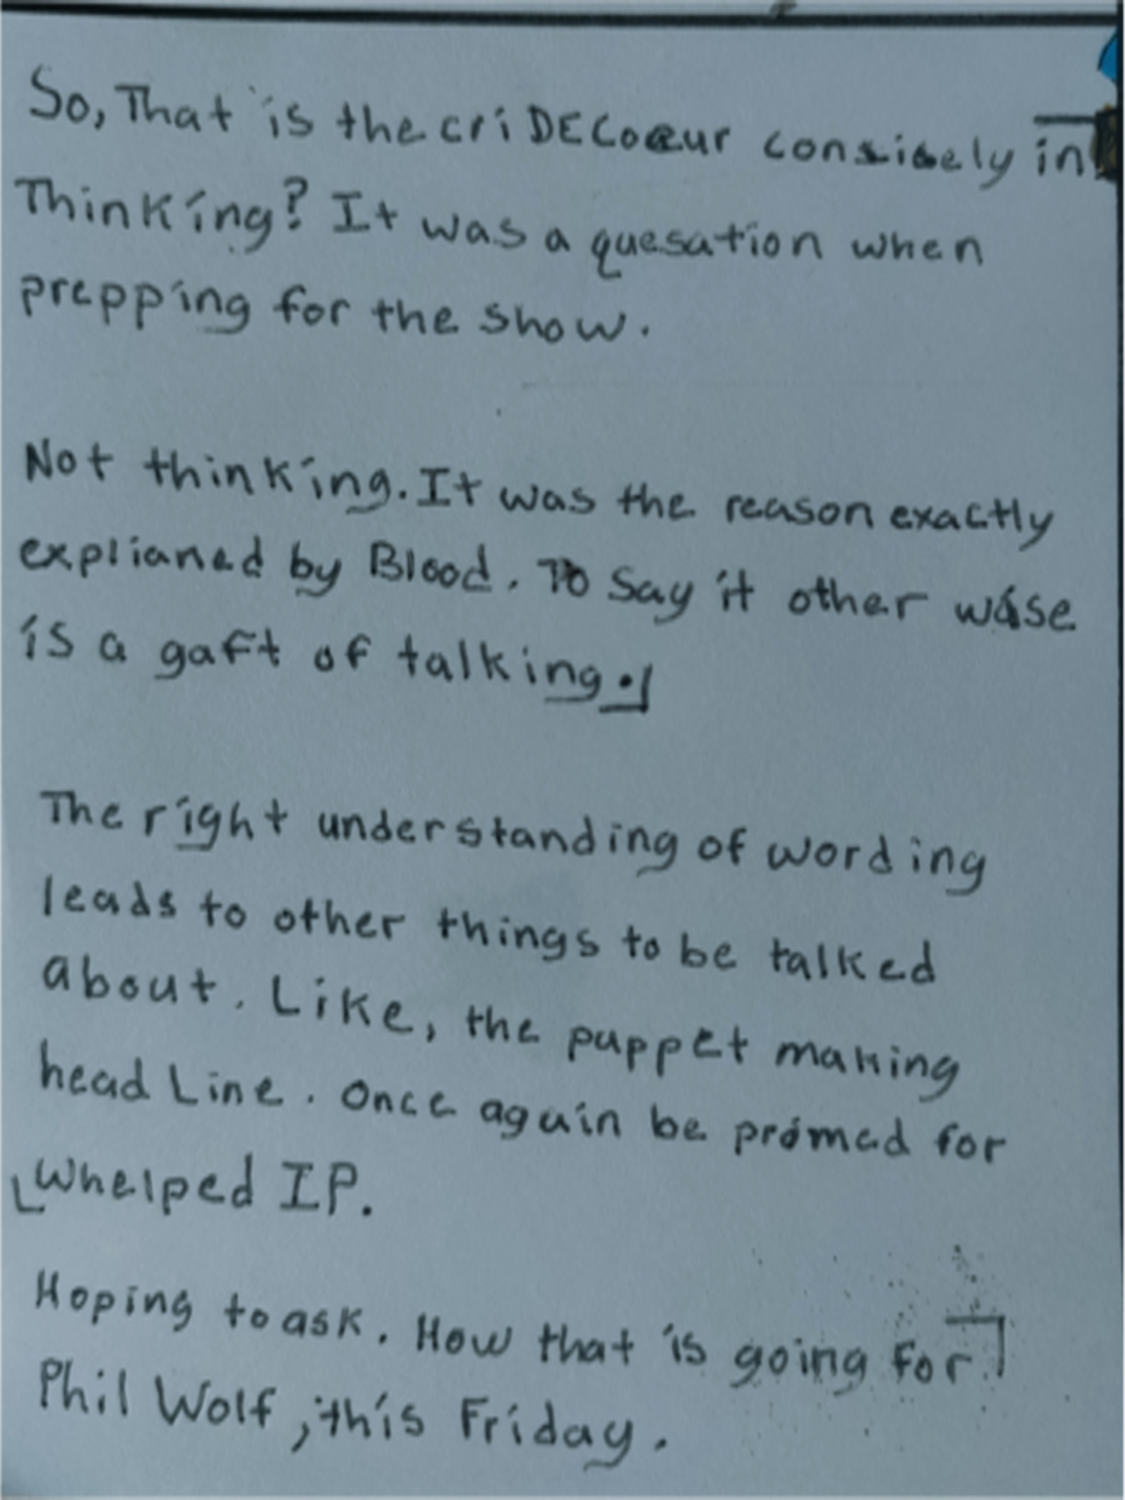 So, That is the cri DE Coeur consicely in
Thinking? It was a quesation when
prepping for the show.
Not thinking. It was the reason exactly
explianed by Blood. To Say it other wise
is a gaft of talking.
The right understanding of wording
leads to other things to be talked
about. Like, the puppet making
head Line. Once again be promed for
Whelped IP.
Hoping to ask. How that is going for
Phil Wolf, this Friday.